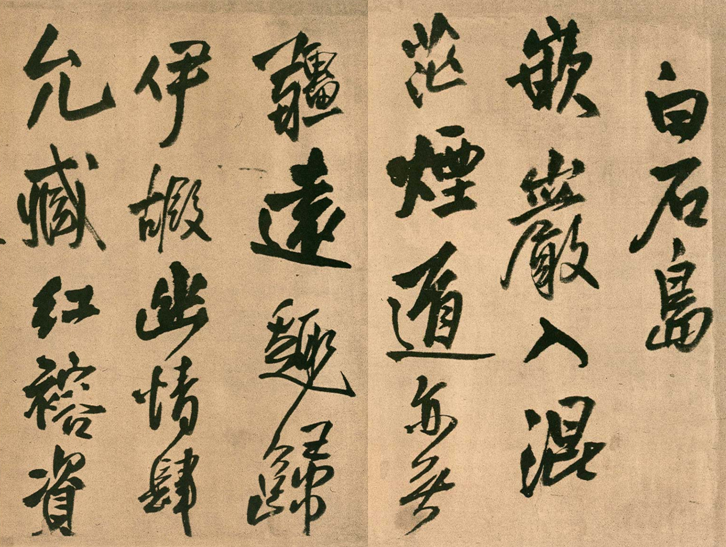 白石島
嵌巖入混
茫煙道亦無
疆遠趣歸
伊嘏幽情肆
允臧紅裕資